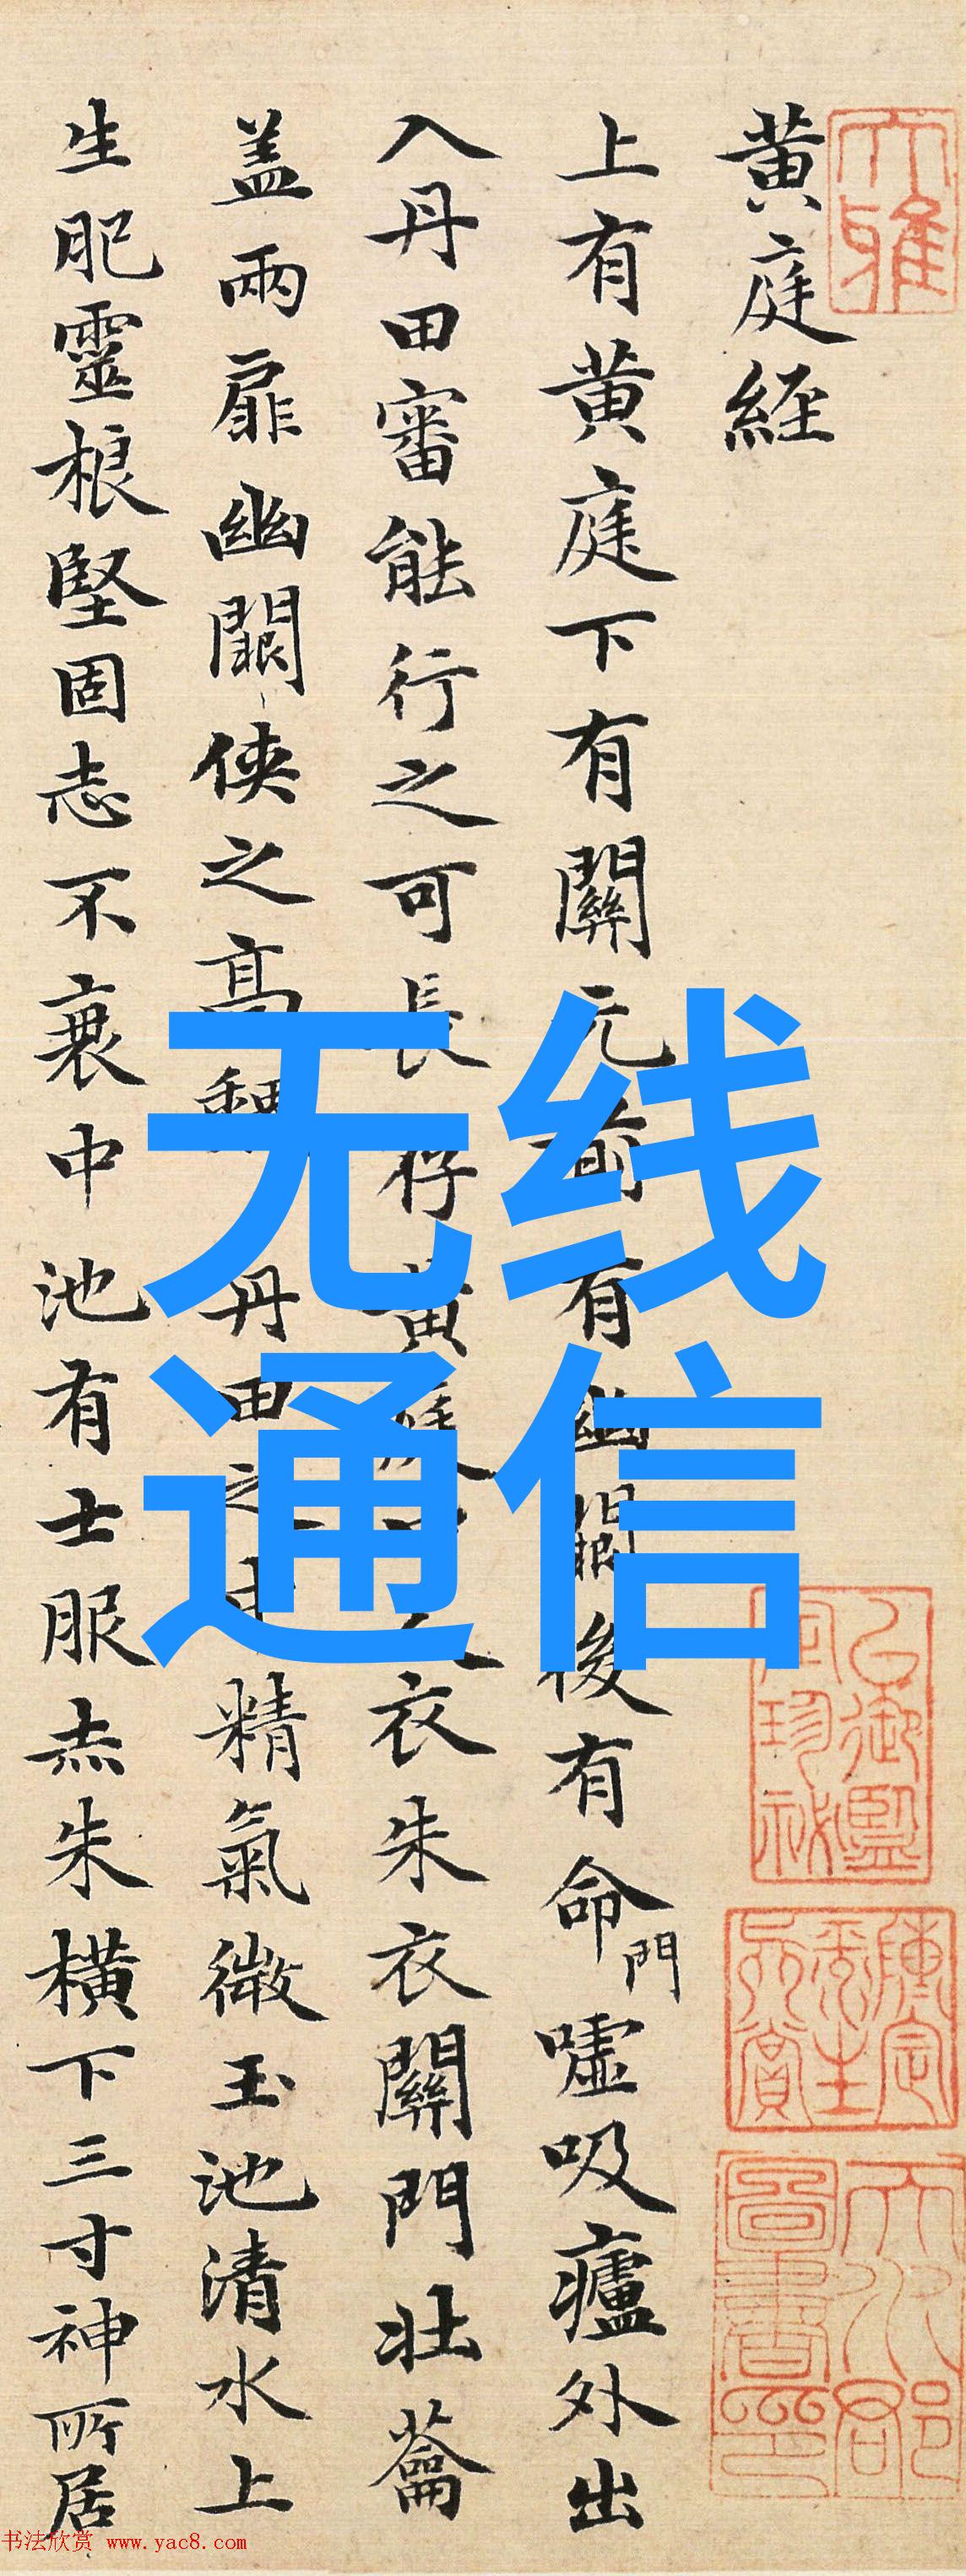 黄庭経
上有黄庭下有關元前有幽闕後有命門噓吸廬外出
入丹田審能行之可長存黄庭衣朱衣關門壮蘥
盖兩扉幽闕侠之高丹田之精氣微玉池清水上
生肥靈根堅固志不衰中池有士服赤朱横下三寸神所居
无线
通信
书法欣赏 www.yac8.com